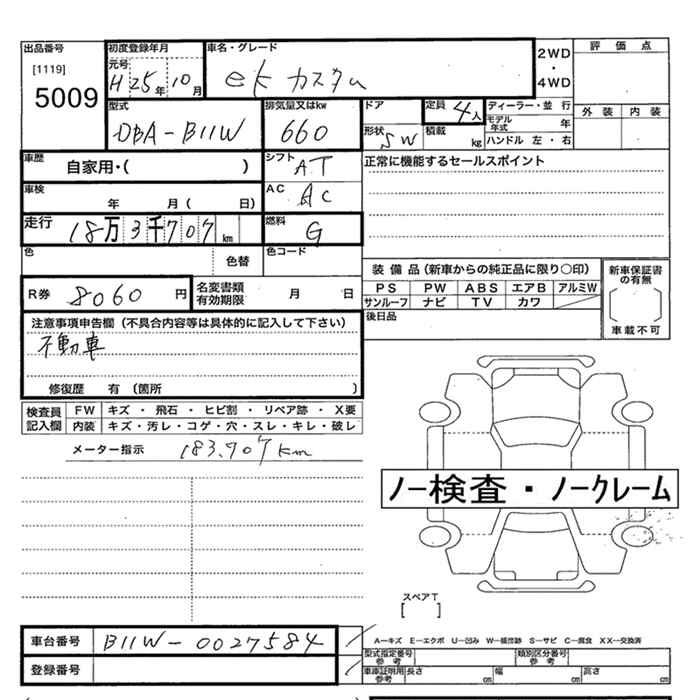 出品番号 初度登録年月 車名・グレード 2WD・4WD 評価点
[1119] 元号
5009 H 25年 10月 ekカスタム
型式 排気量又はkw ドア 定員 4人 ディーラー・並行 外装 内装
DBA-B11W 660 形状 SW 積載 kg モデル年式 年
ハンドル 左・右
車歴 自家用・( ) シフト AT 正常に機能するセールスポイント
車検 年 月( 日) AC AC
走行 18万3千707km 燃料 G
色 色替 色コード
装備品(新車からの純正品に限り○印) 新車保証書の有無
R券 8060円 名変書類有効期限 月 日 PS PW ABS エアB アルミW
サンルーフ ナビ TV カワ 車載不可
注意事項申告欄(不具合内容等は具体的に記入して下さい) 後日品
不動車
修復歴 有(箇所 )
検査員記入欄 FW キズ・飛石・ヒビ割・リペア跡・X要
内装 キズ・汚レ・コゲ・穴・スレ・キレ・破レ
メーター指示 183,707km
ノー検査・ノークレーム
スペアT
[ ]
車台番号 B11W-0027584
A-キズ E-エクボ U-凹み W-補修跡 S-サビ C-腐食 XX-交換済
登録番号 型式指定番号 参考 類別区分番号 参考
車庫証明用 参考 長さ cm 幅 cm 高さ cm